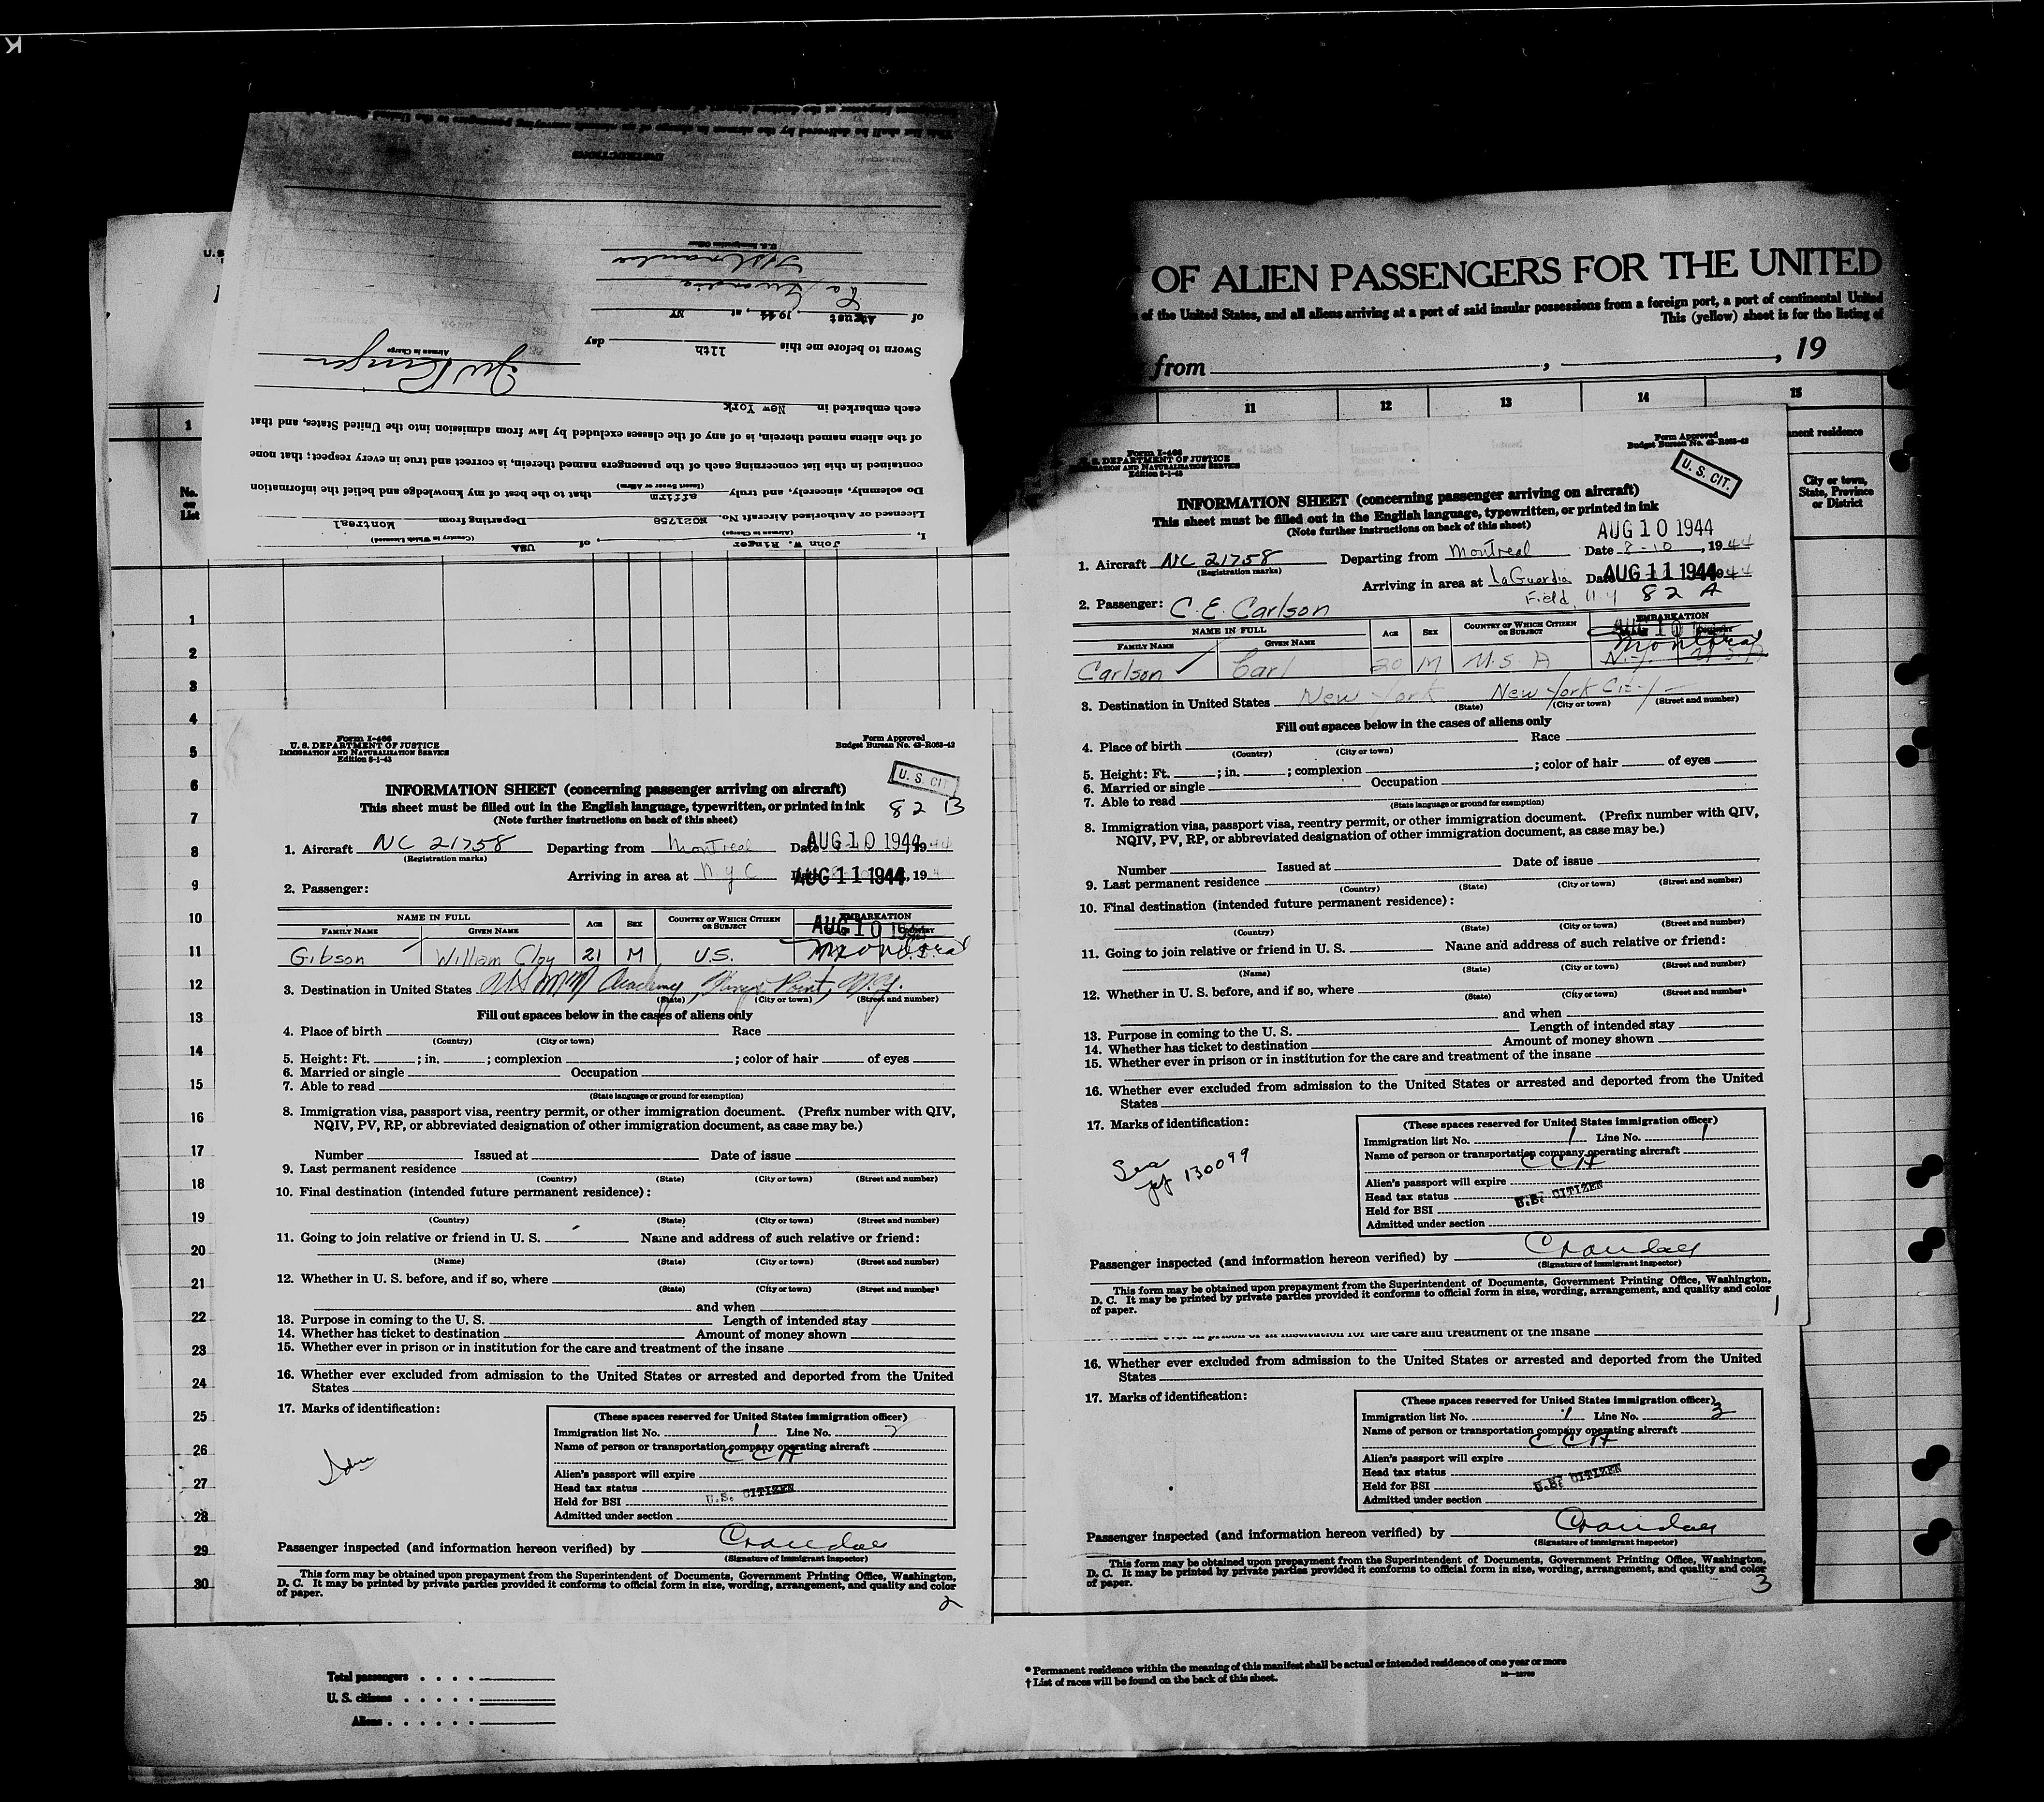 K
INSTRUCTIONS
U. S. Immigration Officer
La Guardia
of August, 1944, at NY
Sworn to before me this 11th day
Airman in Charge
each embarked in New York
of the aliens named therein, is of any of the classes excluded by law from admission into the United States, and that
contained in this list concerning each of the passengers named therein, is correct and true in every respect; that none
(Insert Swear or Affirm)
Do solemnly, sincerely, and truly affirm that to the best of my knowledge and belief the information
Licensed or Authorized Aircraft No. NC21758 Departing from Montreal
(Airman in charge) (Country in Which Licensed)
I, John W. Ringer, of USA
U. S.
1
No. on List
1
2
3
4
5
6
7
8
9
10
11
12
13
14
15
16
17
18
19
20
21
22
23
24
25
26
27
28
29
30
OF ALIEN PASSENGERS FOR THE UNITED
of the United States, and all aliens arriving at a port of said insular possessions from a foreign port, a port of continental United
This (yellow) sheet is for the listing of
from , , 19
11 12 13 14 15
anent residence
City or town, State, Province or District
Form I-466
U. S. DEPARTMENT OF JUSTICE
IMMIGRATION AND NATURALIZATION SERVICE
Edition 8-1-43
Form Approved
Budget Bureau No. 43-R063-42
U. S. CIT.
INFORMATION SHEET (concerning passenger arriving on aircraft)
This sheet must be filled out in the English language, typewritten, or printed in ink 82 B
(Note further instructions on back of this sheet)
1. Aircraft NC 21758 Departing from Montreal Date AUG 10 1944, 1944
(Registration marks)
Arriving in area at N.Y.C Date AUG 11 1944, 194
2. Passenger:
NAME IN FULL AGE SEX COUNTRY OF WHICH CITIZEN OR SUBJECT EMBARKATION
FAMILY NAME GIVEN NAME AUG 10 COUNTRY
Gibson William Cloy 21 M U.S. Montreal
3. Destination in United States US MM Academy, Kings Point, N.Y.
(State) (City or town) (Street and number)
Fill out spaces below in the cases of aliens only
4. Place of birth Race
(Country) (City or town)
5. Height: Ft. ; in. ; complexion ; color of hair of eyes
6. Married or single Occupation
7. Able to read
(State language or ground for exemption)
8. Immigration visa, passport visa, reentry permit, or other immigration document. (Prefix number with QIV,
NQIV, PV, RP, or abbreviated designation of other immigration document, as case may be.)
Number Issued at Date of issue
9. Last permanent residence
(Country) (State) (City or town) (Street and number)
10. Final destination (intended future permanent residence):
(Country) (State) (City or town) (Street and number)
11. Going to join relative or friend in U. S. Name and address of such relative or friend:
(Name) (State) (City or town) (Street and number)
12. Whether in U. S. before, and if so, where
(State) (City or town) (Street and number)
and when
13. Purpose in coming to the U. S. Length of intended stay
14. Whether has ticket to destination Amount of money shown
15. Whether ever in prison or in institution for the care and treatment of the insane
16. Whether ever excluded from admission to the United States or arrested and deported from the United
States
17. Marks of identification:
(These spaces reserved for United States immigration officer)
Immigration list No. 1 Line No. 2
Name of person or transportation company operating aircraft
CCA
Alien's passport will expire
Head tax status
U.S. CITIZEN
Held for BSI
Admitted under section
Passenger inspected (and information hereon verified) by Crandall
(Signature of immigrant inspector)
This form may be obtained upon prepayment from the Superintendent of Documents, Government Printing Office, Washington,
D. C. It may be printed by private parties provided it conforms to official form in size, wording, arrangement, and quality and color
of paper.
2
Form I-466
U. S. DEPARTMENT OF JUSTICE
IMMIGRATION AND NATURALIZATION SERVICE
Edition 8-1-43
Form Approved
Budget Bureau No. 43-R063-42
U. S. CIT.
INFORMATION SHEET (concerning passenger arriving on aircraft)
This sheet must be filled out in the English language, typewritten, or printed in ink
(Note further instructions on back of this sheet)
AUG 10 1944
1. Aircraft NC 21758 Departing from Montreal Date 8-10, 1944
(Registration marks)
Arriving in area at LaGuardia Date AUG 11 1944 1944
Field, N Y 82 A
2. Passenger: C. E. Carlson
NAME IN FULL AGE SEX COUNTRY OF WHICH CITIZEN OR SUBJECT EMBARKATION
FAMILY NAME GIVEN NAME AUG 10 COUNTRY
Montreal
Carlson Carl 20 M U.S.A N.Y. U.S.A
3. Destination in United States New York New York City
(State) (City or town) (Street and number)
Fill out spaces below in the cases of aliens only
4. Place of birth Race
(Country) (City or town)
5. Height: Ft. ; in. ; complexion ; color of hair of eyes
6. Married or single Occupation
7. Able to read
(State language or ground for exemption)
8. Immigration visa, passport visa, reentry permit, or other immigration document. (Prefix number with QIV,
NQIV, PV, RP, or abbreviated designation of other immigration document, as case may be.)
Number Issued at Date of issue
9. Last permanent residence
(Country) (State) (City or town) (Street and number)
10. Final destination (intended future permanent residence):
(Country) (State) (City or town) (Street and number)
11. Going to join relative or friend in U. S. Name and address of such relative or friend:
(Name) (State) (City or town) (Street and number)
12. Whether in U. S. before, and if so, where
(State) (City or town) (Street and number)
and when
13. Purpose in coming to the U. S. Length of intended stay
14. Whether has ticket to destination Amount of money shown
15. Whether ever in prison or in institution for the care and treatment of the insane
16. Whether ever excluded from admission to the United States or arrested and deported from the United
States
17. Marks of identification:
Sea
130099
(These spaces reserved for United States immigration officer)
Immigration list No. 1 Line No. 1
Name of person or transportation company operating aircraft
CCA
Alien's passport will expire
Head tax status
U.S. CITIZEN
Held for BSI
Admitted under section
Passenger inspected (and information hereon verified) by Crandall
(Signature of immigrant inspector)
This form may be obtained upon prepayment from the Superintendent of Documents, Government Printing Office, Washington,
D. C. It may be printed by private parties provided it conforms to official form in size, wording, arrangement, and quality and color
of paper.
1
institution for the care and treatment of the insane
16. Whether ever excluded from admission to the United States or arrested and deported from the United
States
17. Marks of identification:
(These spaces reserved for United States immigration officer)
Immigration list No. 1 Line No. 3
Name of person or transportation company operating aircraft
CCA
Alien's passport will expire
Head tax status
U.S. CITIZEN
Held for BSI
Admitted under section
Passenger inspected (and information hereon verified) by Crandall
(Signature of immigrant inspector)
This form may be obtained upon prepayment from the Superintendent of Documents, Government Printing Office, Washington,
D. C. It may be printed by private parties provided it conforms to official form in size, wording, arrangement, and quality and color
of paper.
3
Total passengers
U. S. citizens
Aliens
* Permanent residence within the meaning of this manifest shall be actual or intended residence of one year or more
† List of races will be found on the back of this sheet.